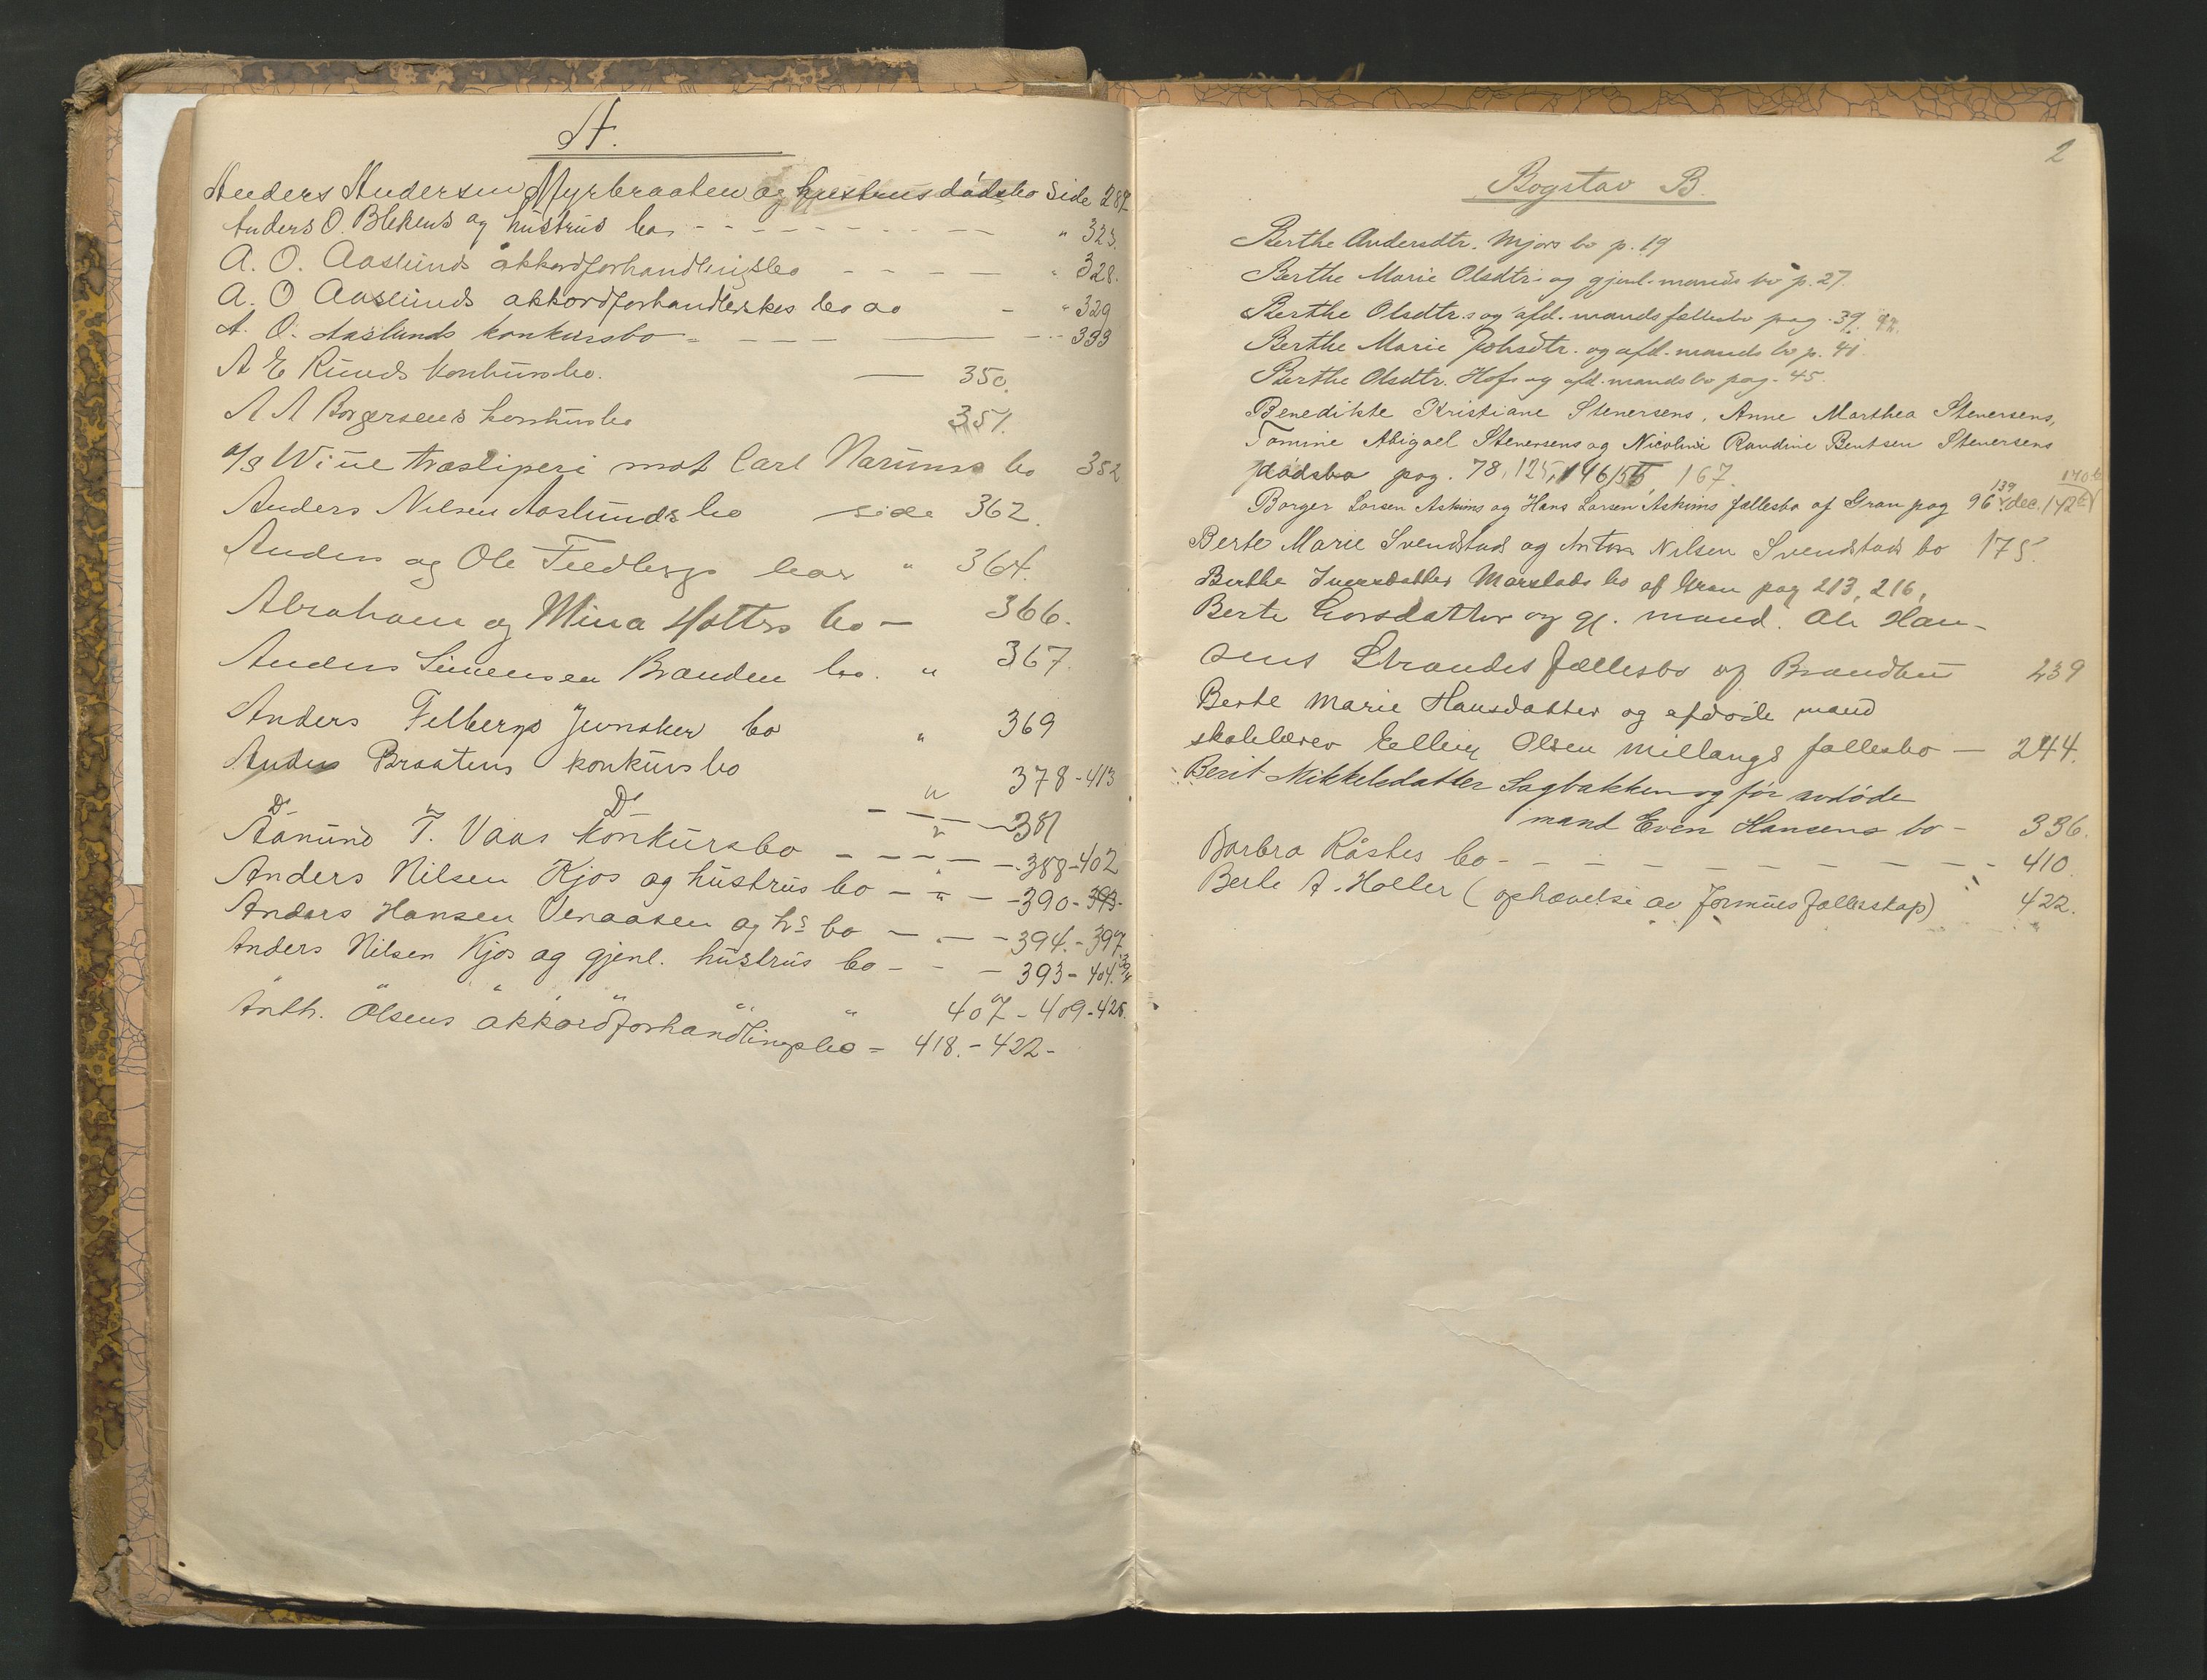 A.
Anders Andersen Myrbraaten og hustrus dødsbo Side 289
Anders O. Blekens og hustrus bo - - - - - - " 323.
A. O. Aaslunds akkordforhandlingsbo - - - - " 328.
A. O Aaslunds akkordforhandlerskes bo ao - " 329
A. O. Aaslunds konkursbo - - - - 333
A E Ruuds konkursbo. — 350.
A A Borgersens konkursbo 351.
A/S Wiule træsliperi mot Carl Narums bo 352
Anders Nilsen Aaslunds bo side 362.
Anders og Ole Fredbergs boer " 364.
Abraham og Mina Hotters bo - 366.
Anders Simensen Branden bo. " 367.
Anders Felbergs Jevnaker bo " 369
Anders Braatens konkursbo " 378-413
Do " Do - " - 381
Aanund T. Vaas konkursbo - - - - 388-402
Anders Nilsen Kjos og hustrus bo - " - 390-393-
Anders Hansen Venaasen og hs bo - . - 394.-397.
Anders Nilsen Kjos og gjenl. hustrus bo - - - 393-404.
" " " " " " " 407-409-425.
Anth. Olsens akkordforhandlingsbo = 418.-422-
2
Bogstav B.
Berthe Andersdtr. Mjørs bo p. 19
Berthe Marie Olsdtr. og gjenl. mands bo p. 27.
Berthe Olsdtr. og afd. mands fællesbo pag. 39. 42.
Berthe Marie Johsdtr. og afd. mands bo p. 41.
Berthe Olsdtr. Hofs og afd. mands bo pag. 45.
Benedikte Kristiane Stenersens, Anne Marthea Stenersens,
Tomine Abigael Stenersens og Nicoline Randine Bentsen Stenersens
dødsbo pag. 78, 125, 146, 155, 167.
Borger Larsen Askims og Hans Larsen Askims fællesbo af Gran pag 96 139 dec. 140 b 142
Berte Marie Svendstad og Anton Nilsen Svendstads bo 175.
Berthe Iversdatter Marstads bo af Gran pag 213, 216,
Berte Larsdatter og gl. mand. Ole Han-
sens Strandes fællesbo af Brandbu 239
Berte Marie Hansdatter og afdøde mand
skolelærer Elling Olsen Millangs fællesbo — 244.
Berit Mikkelsdatter Sagbakken og før avdøde
mand Even Hansens bo - 336.
Barbra Råstes bo - - - - - - - 410.
Berte A. Holter (ophævelse av formuesfællesskap) " 422.